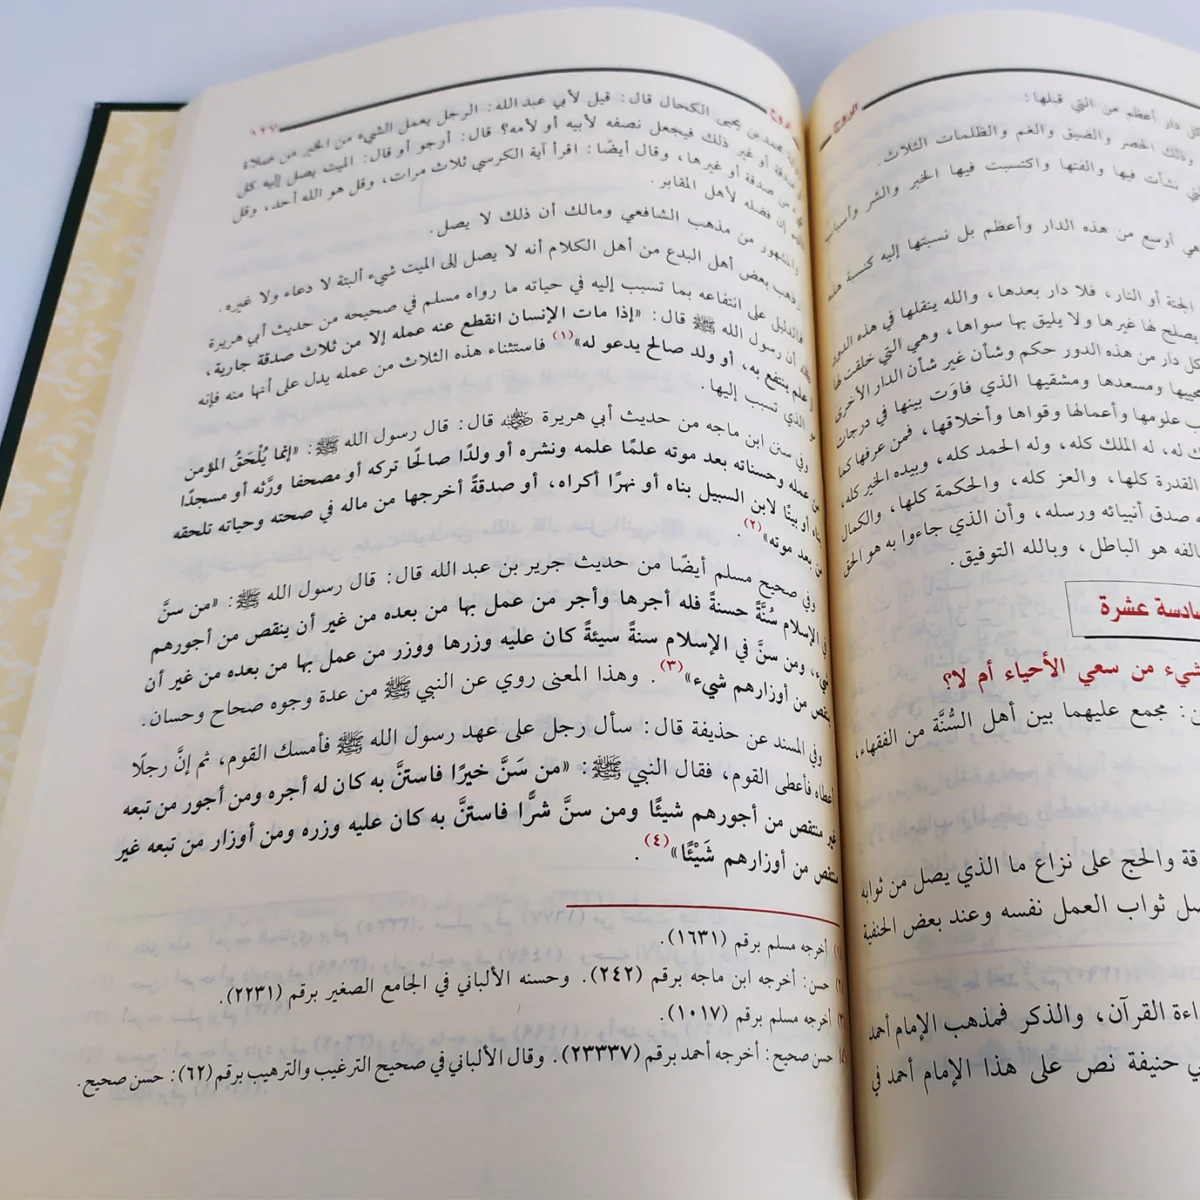 الروح
دار أعظم من التي قبلها:
وذلك الحصر والضيق والغم والظلمات الثلاث.
نشأت فيها والفتها واكتسبت فيها الخير والشر وأسباب
هي أوسع من هذه الدار وأعظم بل نسبتها إليه كنسبة هذه
الجنة أو النار، فلا دار بعدها، والله ينقلها في هذه الدور
يصلح لها غيرها ولا يليق بها سواها، وهي التي خلقت لها
كل دار من هذه الدور حكم وشأن غير شأن الدار الأخرى
ومحييها ومسعدها ومشقيها الذي فاوت بينها في درجات
علومها وأعمالها وقواها وأخلاقها، فمن عرفها كما
له، له الملك كله، وله الحمد كله، وبيده الخير كله،
القدرة كلها، والعز كله، والحكمة كلها، والكمال
صدق أنبيائه ورسله، وأن الذي جاءوا به هو الحق
هو الباطل، وبالله التوفيق.
عشرة
من سعي الأحياء أم لا؟
مجمع عليهما بين أهل السُّنَّة من الفقهاء،
والحج على نزاع ما الذي يصل من ثوابه
ثواب العمل نفسه وعند بعض الحنفية
القرآن، والذكر فمذهب الإمام أحمد
حنيفة نص على هذا الإمام أحمد في
الروح ١٢٧
محمد بن يحيى الكحال قال: قيل لأبي عبد الله: الرجل يعمل الشيء من الخير من صلاة
أو صدقة أو غير ذلك فيجعل نصفه لأبيه أو لأمه؟ قال: أرجو أو قال: الميت يصل إليه كل
من صدقة أو غيرها، وقال أيضًا: اقرأ آية الكرسي ثلاث مرات، وقل هو الله أحد، وقل
إن فضله لأهل المقابر.
والمشهور من مذهب الشافعي ومالك أن ذلك لا يصل.
وذهب بعض أهل البدع من أهل الكلام أنه لا يصل إلى الميت شيء ألبتة لا دعاء ولا غيره.
فالدليل على انتفاعه بما تسبب إليه في حياته ما رواه مسلم في صحيحه من حديث أبي هريرة
أن رسول الله ﷺ قال: «إذا مات الإنسان انقطع عنه عمله إلا من ثلاث صدقة جارية،
أو علم ينتفع به، أو ولد صالح يدعو له»(١) فاستثناء هذه الثلاث من عمله يدل على أنها منه فإنه
هو الذي تسبب إليها.
وفي سنن ابن ماجه من حديث أبي هريرة رضي الله عنه قال: قال رسول الله ﷺ: «إنما يُلْحَقُ المؤمن
من عمله وحسناته بعد موته علمًا علمه ونشره أو ولدًا صالحًا تركه أو مصحفا ورَّثه أو مسجدًا
بناه أو بيتًا لابن السبيل بناه أو نهرًا أكراه، أو صدقةً أخرجها من ماله في صحته وحياته تلحقه
من بعد موته»(٢).
وفي صحيح مسلم أيضًا من حديث جرير بن عبد الله قال: قال رسول الله ﷺ: «من سنَّ
في الإسلام سُنَّةً حسنةً فله أجرها وأجر من عمل بها من بعده من غير أن ينقص من أجورهم
شيء، ومن سنَّ في الإسلام سنةً سيئةً كان عليه وزرها ووزر من عمل بها من بعده من غير أن
ينقص من أوزارهم شيء»(٣). وهذا المعنى روي عن النبي ﷺ من عدة وجوه صحاح وحسان.
وفي المسند عن حذيفة قال: سأل رجل على عهد رسول الله ﷺ فأمسك القوم، ثم إنَّ رجلًا
أعطاه فأعطى القوم، فقال النبي ﷺ: «من سَنَّ خيرًا فاستنَّ به كان له أجره ومن أجور من تبعه
غير منتقص من أجورهم شيئًا ومن سنَّ شرًّا فاستنَّ به كان عليه وزره ومن أوزار من تبعه غير
منتقص من أوزارهم شَيْئًا»(٤).
(١) أخرجه مسلم برقم (١٦٣١).
(٢) حسن: أخرجه ابن ماجه برقم (٢٤٢). وحسنه الألباني في الجامع الصغير برقم (٢٢٣١).
(٣) أخرجه مسلم برقم (١٠١٧).
(٤) حسن صحيح: أخرجه أحمد برقم (٢٣٣٣٧). وقال الألباني في صحيح الترغيب والترهيب برقم (٦٢): حسن صحيح.